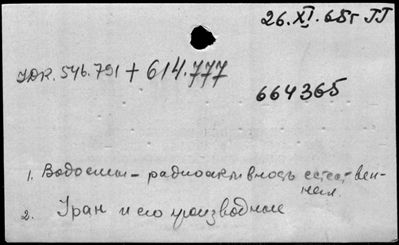 26.XI.65г ГГ
УДК. 546.791 + 614.777
664365
1. Водоемы - радиоактивность естествен-
ная.
2. Уран и его производные